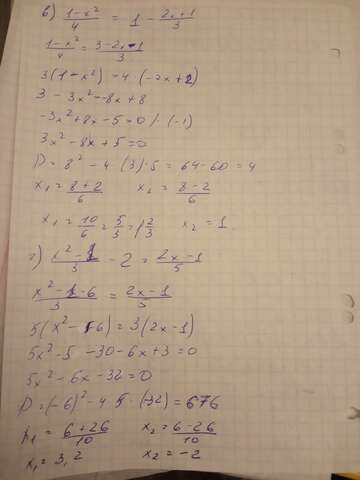 б) (1-x²)/4 = 1 - (2x+1)/3
(1-x²)/4 = (3-2x-1)/3
3(1-x²) = 4(-2x+2)
3 - 3x² = -8x + 8
-3x² + 8x - 5 = 0 /·(-1)
3x² - 8x + 5 = 0
D = 8² - 4·(3)·5 = 64 - 60 = 4
x₁ = (8+2)/6 x₂ = (8-2)/6
x₁ = 10/6 = 5/3 = 1 2/3 x₂ = 1
г) (x²-1)/3 - 2 = (2x-1)/5
(x²-1-6)/3 = (2x-1)/5
5(x²-1-6) = 3(2x-1)
5x² - 5 - 30 - 6x + 3 = 0
5x² - 6x - 32 = 0
D = (-6)² - 4·5·(-32) = 676
x₁ = (6+26)/10 x₂ = (6-26)/10
x₁ = 3,2 x₂ = -2